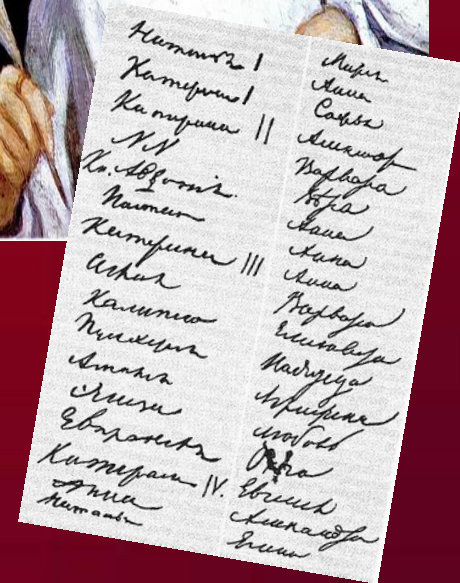 Наталья I
Катерина I
Катерина II
NN
Кн. Авдотія.
Настасья
Катерина III
Аглая
Калипсо
Пулхерія
Амалія
Элиза
Евпраксея
Катерина IV.
Анна
Наталья
Марія
Анна
Софья
Александра
Варвара
Вѣра
Анна
Анна
Анна
Варвара
Елизавета
Надежда
Аграфена
Любовь
Ольга
Евгенія
Александра
Елена